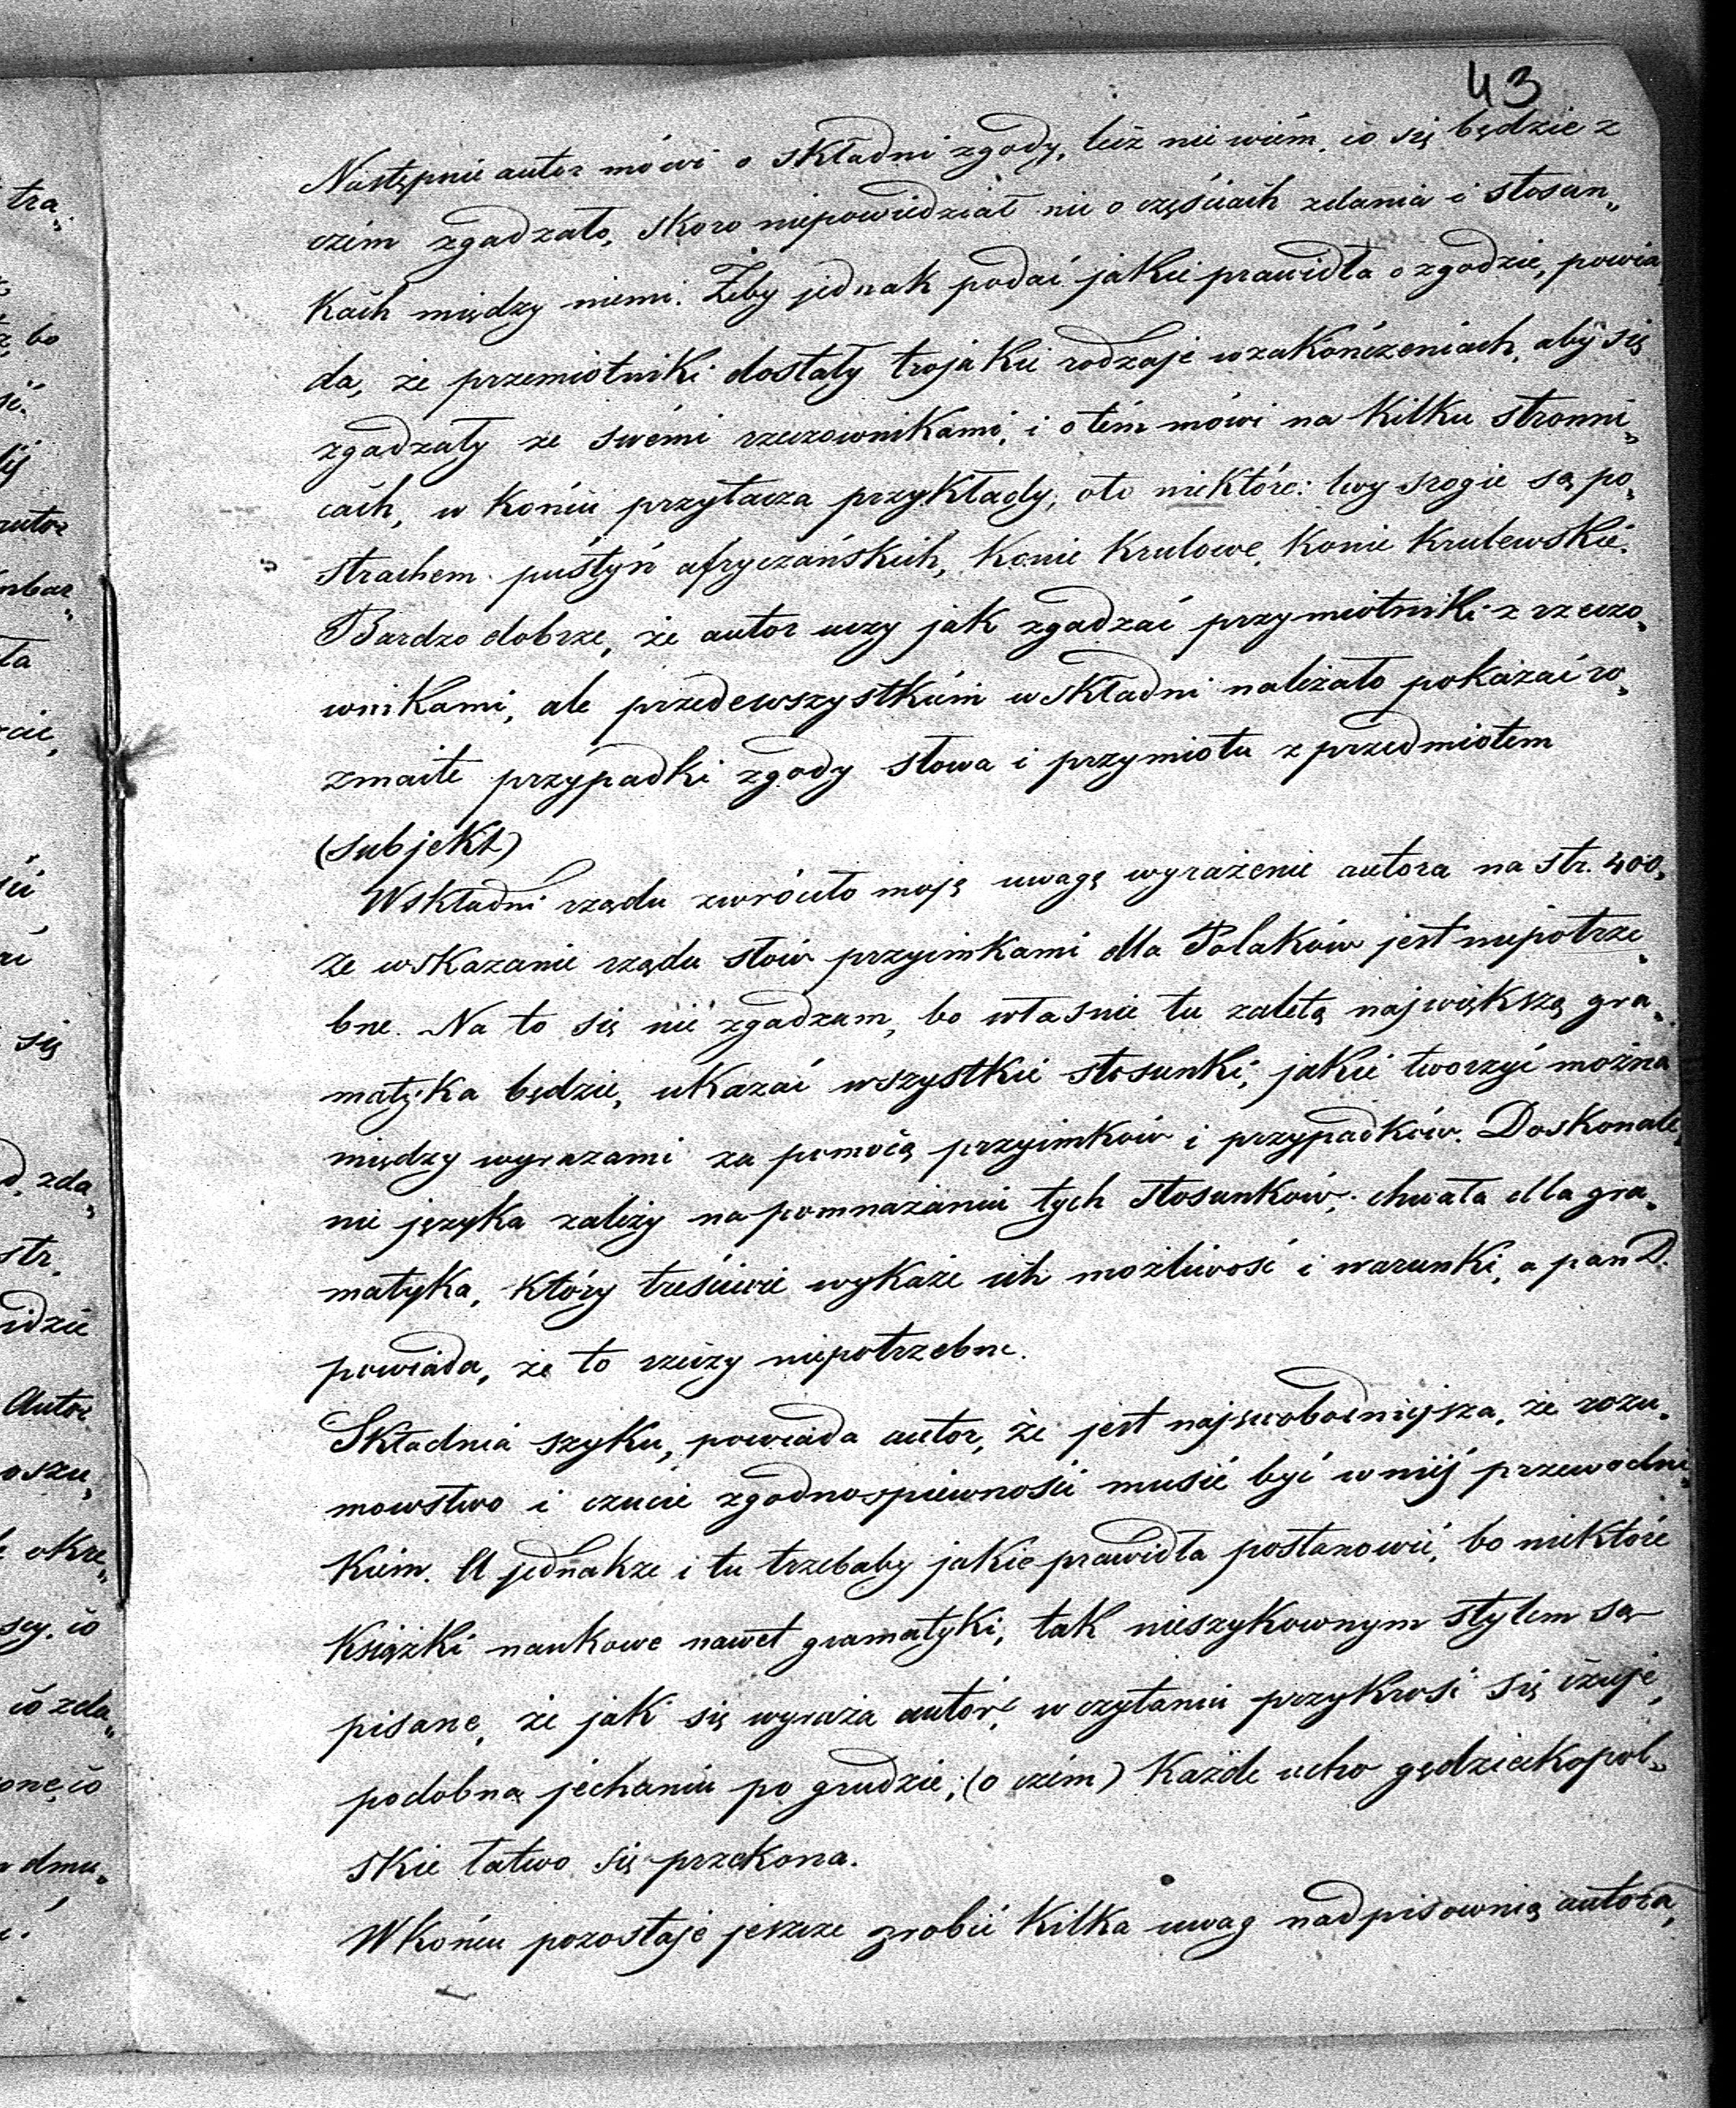 43
Następnie autor mówi o składni zgody, lecz nie wiém, co się będzie z
czém zgadzało, skoro niepowiedział nic o częściach zdania i stosun„
kach między niemi. Żeby jednak podać jakie prawidła o zgodzie, powia
da, że przemiotniki dostały trojakie rodzaje w zakończeniach, aby się
zgadzały ze swémi rzeczownikami, i o tém mówi na kilku stronni„
cach, w końcu przytacza przykłady, oto niektóre: lwy srogie są po„
strachem pustyń afryczańskich, Konie Krulowe, Konie Krulewskie.
Bardzo dobrze, że autor uczy jak zgadzać przymiotniki z rzeczo„
wnikami, ale przedewszystkiém w składni należało pokazać ro„
zmaite przypadki zgody słowa i przymiotu z przedmiotem
(subjekt)
W składni rządu zwróciło moję uwagę wyrażenie autora na str. 400,
że wskazanie rządu słów przyimkami dla Polaków jest niepotrze„
bne. Na to się nie zgadzam, bo własnie tu zaletą największą gra„
matyka będzie, ukazać wszystkie stosunki, jakie tworzyć można
między wyrazami za pomocą przyimków i przypadków. Doskonale„
nie języka zależy na pomnażaniu tych stosunków; chwała dla gra„
matyka, który treściwie wykaże ich możliwość i warunki, a pan D.
powiada, że to rzeczy niepotrzebne.
Składnia szyku, powiada autor, że jest najswobodniejsza, że rozu„
mowstwo i czucie zgodnośpiewności musié być w niéj przewodni„
kiém. A jednakże i tu trzebaby jakie prawidła postanowić, bo niektóre
Książki naukowe nawet gramatyki, tak nieszykownym stylem są
pisane, że jak się wyraża autór, w czytaniu przykrość się czuje,
podobna jechaniu po grudzie; (o czém) Każde ucho gędzieckopol„
skie łatwo się przekona.
W końcu pozostaje jeszcze zrobić kilka uwag nad pisownią autora,